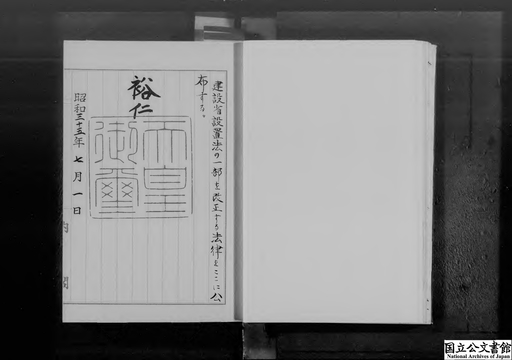 建設省設置法の一部を改正する法律をここに公
布する。
裕仁
天皇
御璽
昭和三十五年七月一日
内閣
国立公文書館
National Archives of Japan